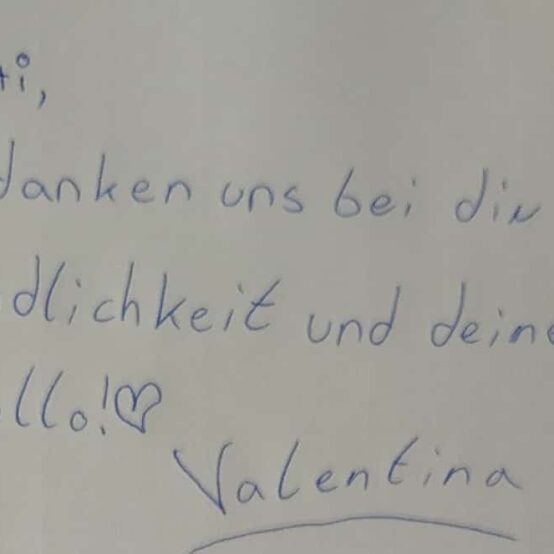 ti,
danken uns bei dir
dlichkeit und deine
llo!♡
Valentina